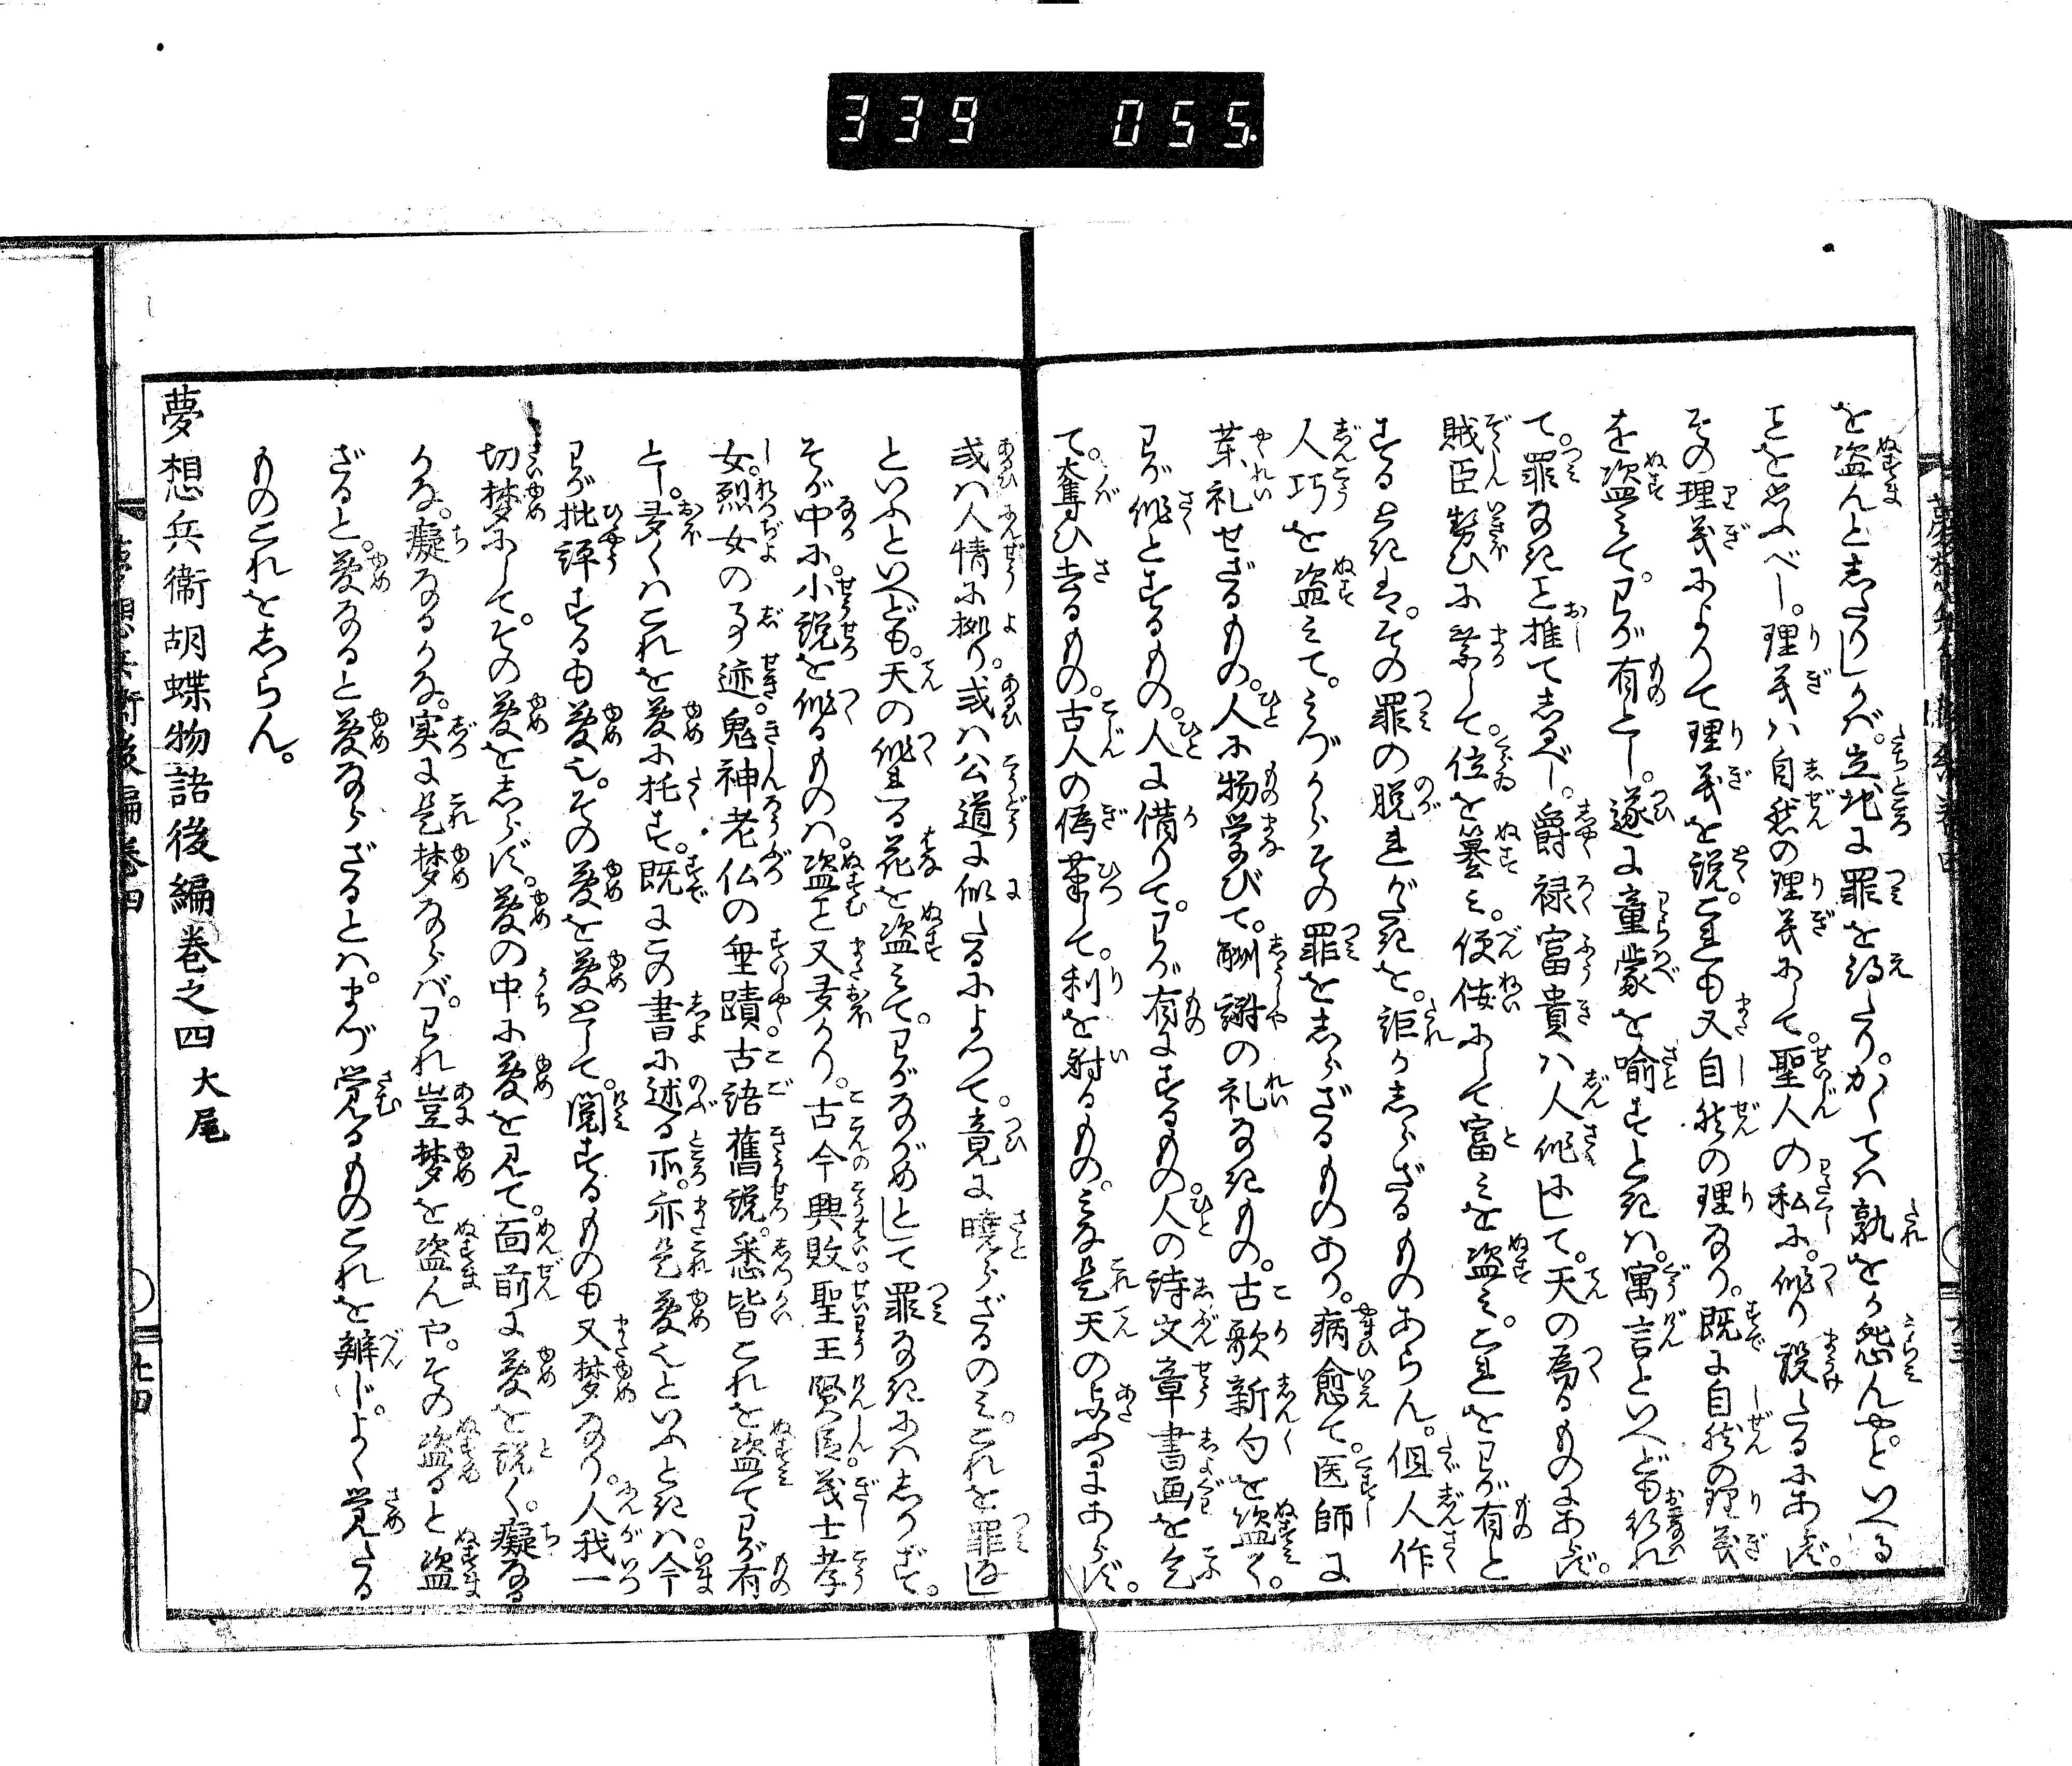 339 055
を盗んとしたりしかバ。立地に罪を得たり。かくてハ孰をか怨んやといへる
ことを思ふべし。理義ハ自然の理義にして。聖人の私に。作り設たるにあらず。
その理義によりて理義を説。これも又自然の理なり。既に自然の理義
を盗みて。わが有とし。遂に童蒙を喩すときハ。寓言といへども行れ
て。罪なきこと推てしるべし。爵禄富貴ハ人作にして。天の為るものにあらず。
賊臣勢ひに乗して。位を簒ミ。便佞にして富ミを盗ミ。これをわが有と
するときは。その罪の脱れがたきを。誰かしらざるものあらん。但人作
人巧を盗ミて。ミづからその罪をしらざるものあり。病愈て。医師に
薬礼せざるもの。人に物学びて。酬謝の礼なきもの。古歌新句を盗く。
わが作とするもの。人に借りて。わが有にするもの。人の詩文章書画を乞
て。奪ひ去るもの。古人の偽筆して。利を射るもの。ミな是天の与ふるにあらず。
或ハ人情に拠り。或ハ公道に似たるによつて。竟に暁らざるのミ。これを罪なし
といふといへども。天の作れる花を盗ミて。わがながめとして罪なきにハしかず。
そが中に。小説を作るものハ。盗こと又多かり。古今興敗聖王賢臣。義士孝
女。烈女の事迹。鬼神老仏の垂蹟古語舊説。悉皆これを盗てわが有
とし。多くハこれを夢に托す。既にこの書に述る所。亦是夢也といふときハ。今
わが批評するも夢也。その夢を夢として。閲するものも又夢なり。人我一
切夢にして。その夢をしらず。夢の中に夢を見て。面前に夢を説く。癡なる
かな。癡なるかな。実に是夢ならバ。われ豈夢を盗んや。その盗ると盗
ざると。夢なると夢ならざるとハ。まづ覚るものこれを辨じ。よく覚たる
ものこれをしらん。
夢想兵衞胡蝶物語後編巻之四大尾